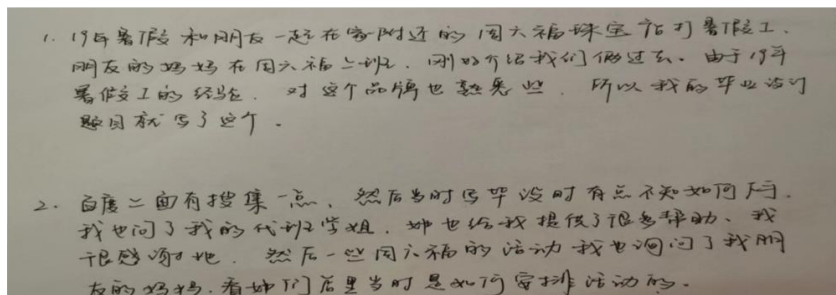 1. 19年暑假和朋友一起在家附近的周六福珠宝店打暑假工.
朋友的妈妈在周六福上班.刚好介绍我们俩过去.由于19年
暑假工的经验.对这个品牌也熟悉些.所以我的毕业设计
题目就写了这个.
2. 百度上面有搜集一点、然后当时写毕设时有点不知如何下手.
我也问了我的代班学姐.她也给我提供了很多帮助、我
很感谢她.然后一些周六福的活动我也询问了我朋
友的妈妈.看她门店里当时是如何安排活动的.